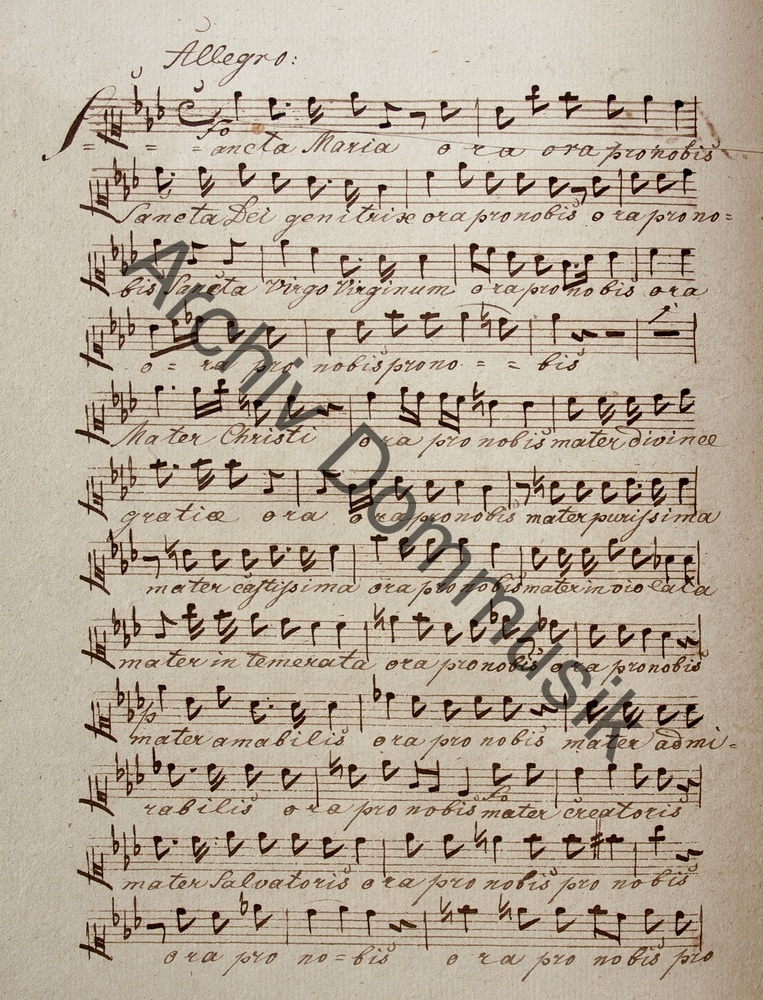 Allegro:
Sancta Maria o ra ora pro nobis
Sancta Dei genitrix ora pro nobis o ra pro no=
bis Sancta Virgo Virginum o ra pro nobis ora
o = ra pro nobis prono = = bis
Mater Christi o ra pro nobis mater divinae
gratiae o ra o ra pro nobis mater purissima
mater castissima ora pro nobis mater in vio lata
mater in temerata ora pro nobis o ra pro nobis
p
mater amabilis ora pro nobis mater admi=
rabilis o ra pro nobis mater creatoris
mater Salvatoris o ra pro nobis pro no bis
ora pro no=bis o ra pro nobis pro
Archiv Dommusik